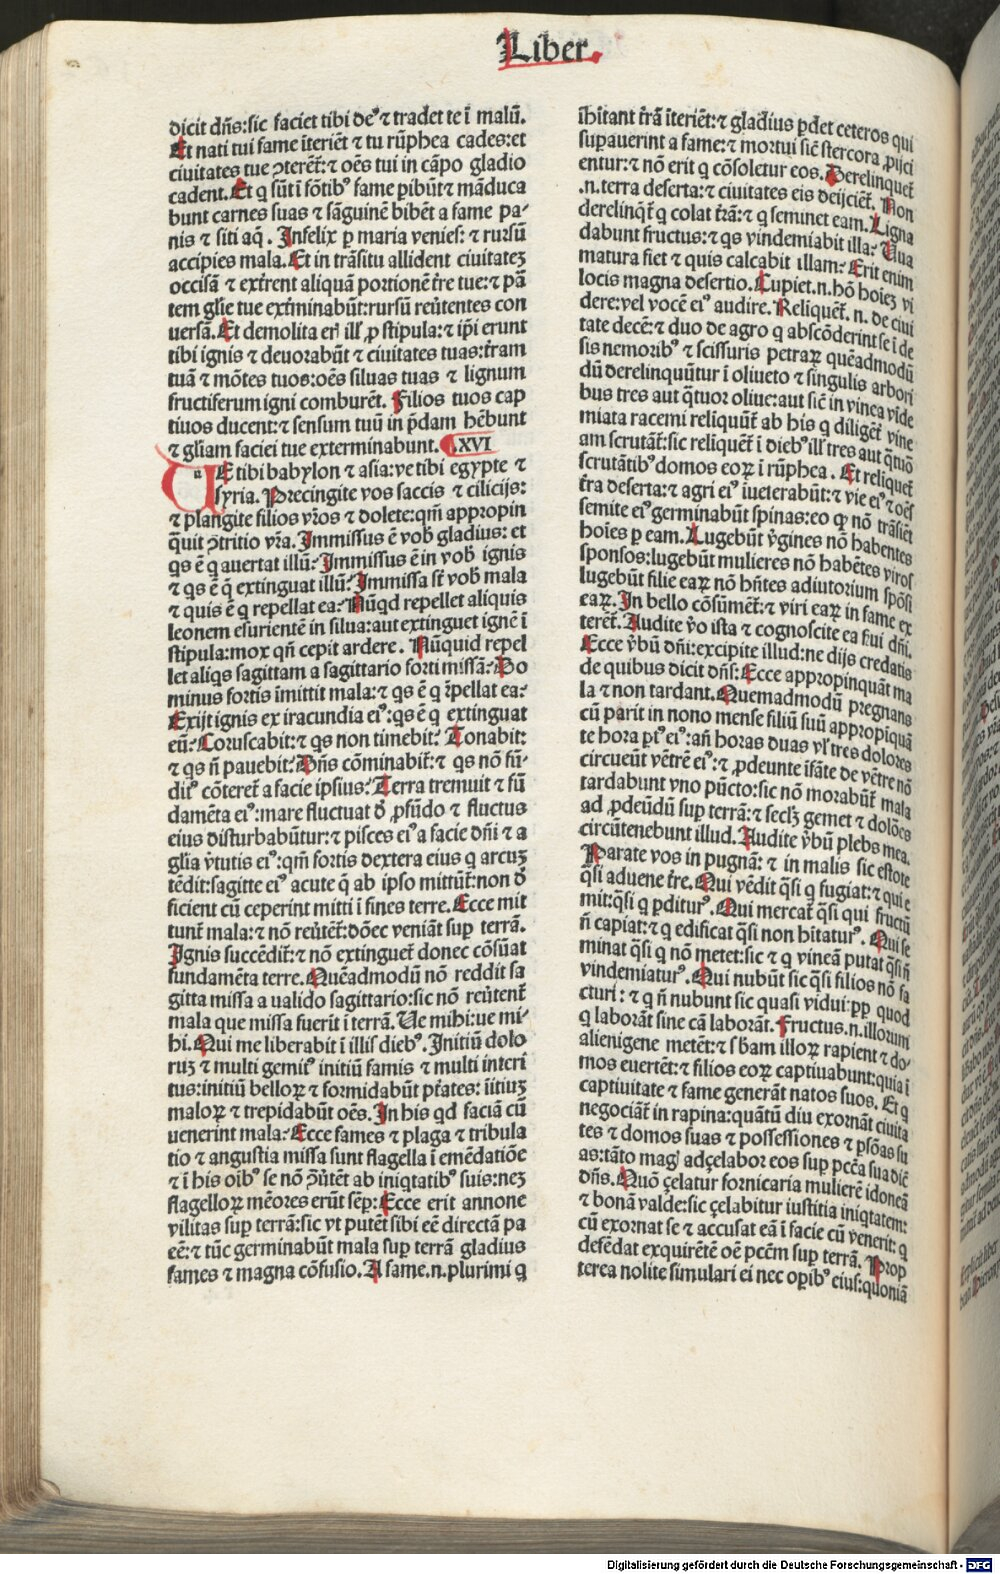 Liber.
dicit dñs:sic faciet tibi de⁹ ⁊ tradet te ī malū.
Et nati tui fame ĩteriẽt ⁊ tu rũphea cades:et
ciuitates tue ꝯterẽt̃: ⁊ oẽs tui in cãpo gladio
cadent. Et q̃ sũt ĩ sõtib⁹ fame ꝑibũt ⁊ mãduca
bunt carnes suas ⁊ sãguinẽ bibẽt a fame pa⸗
nis ⁊ siti aq̃. Infelix ꝑ maria venies: ⁊ rursũ
accipies mala. Et in trãsitu allident ciuitateꝫ
occisã ⁊ ext̃rent aliquã portionẽ t̃re tue:⁊ pã
tem gl̃ie tue ext̃minabũt:rursũ reũtentes con
uersã. Et demolita eri ill̃ ꝓ stipula: ⁊ ip̃i erunt
tibi ignis ⁊ deuorabũt ⁊ ciuitates tuas:t̃ram
tuã ⁊ mõtes tuos:oẽs siluas tuas ⁊ lignum
fructiferum igni comburẽt. Filios tuos cap
tiuos ducent:⁊ sensum tuũ in p̃dam hẽbunt
⁊ gl̃iam faciei tue exterminabunt. XVI
UE tibi babylon ⁊ asia:ve tibi egypte ⁊
syria. Precingite vos saccis ⁊ cilicijs:
⁊ plangite filios vr̃os ⁊ dolete:qm̃ appropin
q̃uit ꝯtritio vr̃a. Immissus ẽ vob̃ gladius: et
qs ẽ q̃ auertat illũ? Immissus ẽ in vob̃ ignis
⁊ qs ẽ q̃ extinguat illũ? Immissa st̃ vob̃ mala
⁊ quis ẽ q̃ repellat ea? Nũqd repellet aliquis
leonem esurientẽ in silua:aut extinguet ignẽ ĩ
stipula:mox qñ cepit ardere. Nũquid repel
let aliqs sagittam a sagittario forti missã? Do
minus fortis ĩmittit mala:⁊ qs ẽ q̃ r̃pellat ea?
Exijt ignis ex iracundia ei⁹:qs ẽ q̃ extinguat
eũ? Coruscabit:⁊ qs non timebit? Tonabit:
⁊ qs ñ pauebit? Dñs cõminabit̃:⁊ qs nõ fũ⸗
dit⁹ cõteret̃ a facie ipsius? Terra tremuit ⁊ fũ
damẽta ei⁹:mare fluctuat ð ꝓfũdo ⁊ fluctus
eius disturbabũtur:⁊ pisces ei⁹ a facie dñi ⁊ a
gl̃ia v̓tutis ei⁹:qm̃ fortis dextera eius q̃ arcuꝫ
tẽdit:sagitte ei⁹ acute q̃ ab ipso mittũt̃:non ð
ficient cũ ceperint mitti ĩ fines terre. Ecce mit
tunt̃ mala:⁊ nõ reũtẽt̃:dõec veniãt suꝑ terrã.
Ignis succẽdit̃:⁊ nõ extinguet̃ donec cõsũat
fundamẽta terre. Quẽadmodũ nõ reddit sa
gitta missa a ualido sagittario:sic nõ reũtent̃
mala que missa fuerit ĩ terrã. Ue mihi:ue mi⸗
hi. Qui me liberabit ĩ illis dieb⁹. Initiũ dolo
ruꝫ ⁊ multi gemit⁹ initiũ famis ⁊ multi interi
tus:initiũ belloꝝ ⁊ formidabũt pt̃ates: ĩitiuꝫ
maloꝝ ⁊ trepidabũt oẽs. In his qd faciã cũ
uenerint mala? Ecce fames ⁊ plaga ⁊ tribula
tio ⁊ angustia missa sunt flagella ĩ emẽdatiõe
⁊ ĩ his oĩb⁹ se nõ ꝯũtẽt ab iniqtatib⁹ suis:neꝫ
flagelloꝝ mẽores erũt sẽꝑ: Ecce erit annone
vilitas suꝑ terrã:sic vt putẽt sibi eẽ directã pa
cẽ: ⁊ tũc germinabũt mala suꝑ terrã gladius
fames ⁊ magna cõfusio. A fame.n.plurimi q̃
ĩhĩtant t̃rã ĩteriẽt:⁊ gladius ꝑdet ceteros qui
suꝑauerint a fame:⁊ mortui sic̃ stercora ꝓijci
entur:⁊ nõ erit q̃ cõsoletur eos. Derelinquet̃
.n. terra deserta:⁊ ciuitates eis deijciẽt̃. Non
derelinq̃t̃ q̃ colat t̃rã:⁊ q̃ seminet eam. Ligna
dabunt fructus:⁊ qs vindemiabit illa? Uua
matura fiet ⁊ quis calcabit illam? Erit enim
locis magna desertio. Cupiet.n.hõ hoieꝫ vi
dere:vel vocẽ ei⁹ audire. Reliquẽt̃.n. de ciui
tate decẽ:⁊ duo de agro q̃ abscõderint se ĩ de
sis nemorib⁹ ⁊ scissuris petraꝝ quẽadmodũ
dũ derelinquũtur ĩ oliueto ⁊ singulis arbori
bus tres aut q̃tuor oliue:aut sic̃ in vinea vĩde
miata racemi relĩquũt̃ ab his q̃ diligẽt̃ vine
am scrutãt̃:sic relĩquẽt̃ ĩ dieb⁹ ill̃ tres aut q̃tuõ
scrutãtib⁹ domos eoꝝ ĩ rũphea. Et reliquet̃
t̃ra deserta:⁊ agri ei⁹ iueterabũt:⁊ vie ei⁹ ⁊ oẽs
semite ei⁹ germinabũt spinas:eo ꝙ nõ trãsiẽt
hoĩes ꝑ eam. Lugebũt v̓gines nõ habentes
sponsos:lugebũt mulieres nõ habẽtes viros
lugebũt filie eaꝝ nõ hñtes adiutorium spõsi
eaꝝ. In bello cõsũmẽt̃:⁊ viri eaꝝ in fame ex
terẽt̃. Audite v̓o ista ⁊ cognoscite ea s̃ui dñi.
Ecce v̓bũ dñi:excipite illud:ne dijs credatis
de quibus dicit dñs: Ecce appropinquãt ma
la ⁊ non tardant. Quemadmodũ pregnans
cũ parit in nono mense filiũ suũ appropĩquã
te hora pt̃⁹ ei⁹:añ horas duas vl̃ tres dolores
circueũt vẽtrẽ ei⁹:⁊ ꝓdeunte ĩfãte de vẽtre nõ
tardabunt vno pũcto:sic nõ morabũt̃ mala
ad ꝓdeũdũ suꝑ terrã:⁊ secl̃ꝫ gemet ⁊ dolõcs
circũtenebunt illud. Audite v̓bũ plebs mea.
Parate vos in pugnã: ⁊ in malis sic estote
q̃si aduene t̃re. Qui vẽdit q̃si q̃ fugiat:⁊ qui e
mit:q̃si q̃ ꝑditur⁹. Qui mercat̃ q̃si qui fructũ
ñ capiat:⁊ q̃ edificat q̃si non hĩtatur⁹. Qui se
minat q̃si q̃ nõ metet:sic ⁊ q̃ vineã putat q̃si ñ
vindemiatur⁹. Qui nubũt sic q̃si filios nõ fa
cturi: ⁊ q̃ ñ nubunt sic quasi vidui:ꝓp̃ quod
q̃ laborãt sine cã laborãt. Fructus.n.illorum
alienigene metẽt:⁊ sb̃am illoꝝ rapient ⁊ do⸗
mos euertẽt:⁊ filios eoꝝ captiuabunt:quia ĩ
captiuitate ⁊ fame generãt natos suos. Et q̃
negociãt̃ in rapina:quãtũ diu exornãt ciuita
tes ⁊ domos suas ⁊ possessiones ⁊ ꝑsõas su
as:tãto mag̃ adçelabor eos suꝑ pcc̃a sua dic̃
dñs. Quõ çelatur fornicaria mulierẽ idoneã
⁊ bonã valde:sic çelabitur iustitia iniqtatem:
cũ exornat se ⁊ accusat eã ĩ facie cũ venerit: q̃
defẽdat exquirẽtẽ oẽ pccm̃ suꝑ terrã. Prop
terea nolite simulari ei nec oꝑib⁹ eius:quoniã
Digitalisierung gefördert durch die Deutsche Forschungsgemeinschaft - DFG